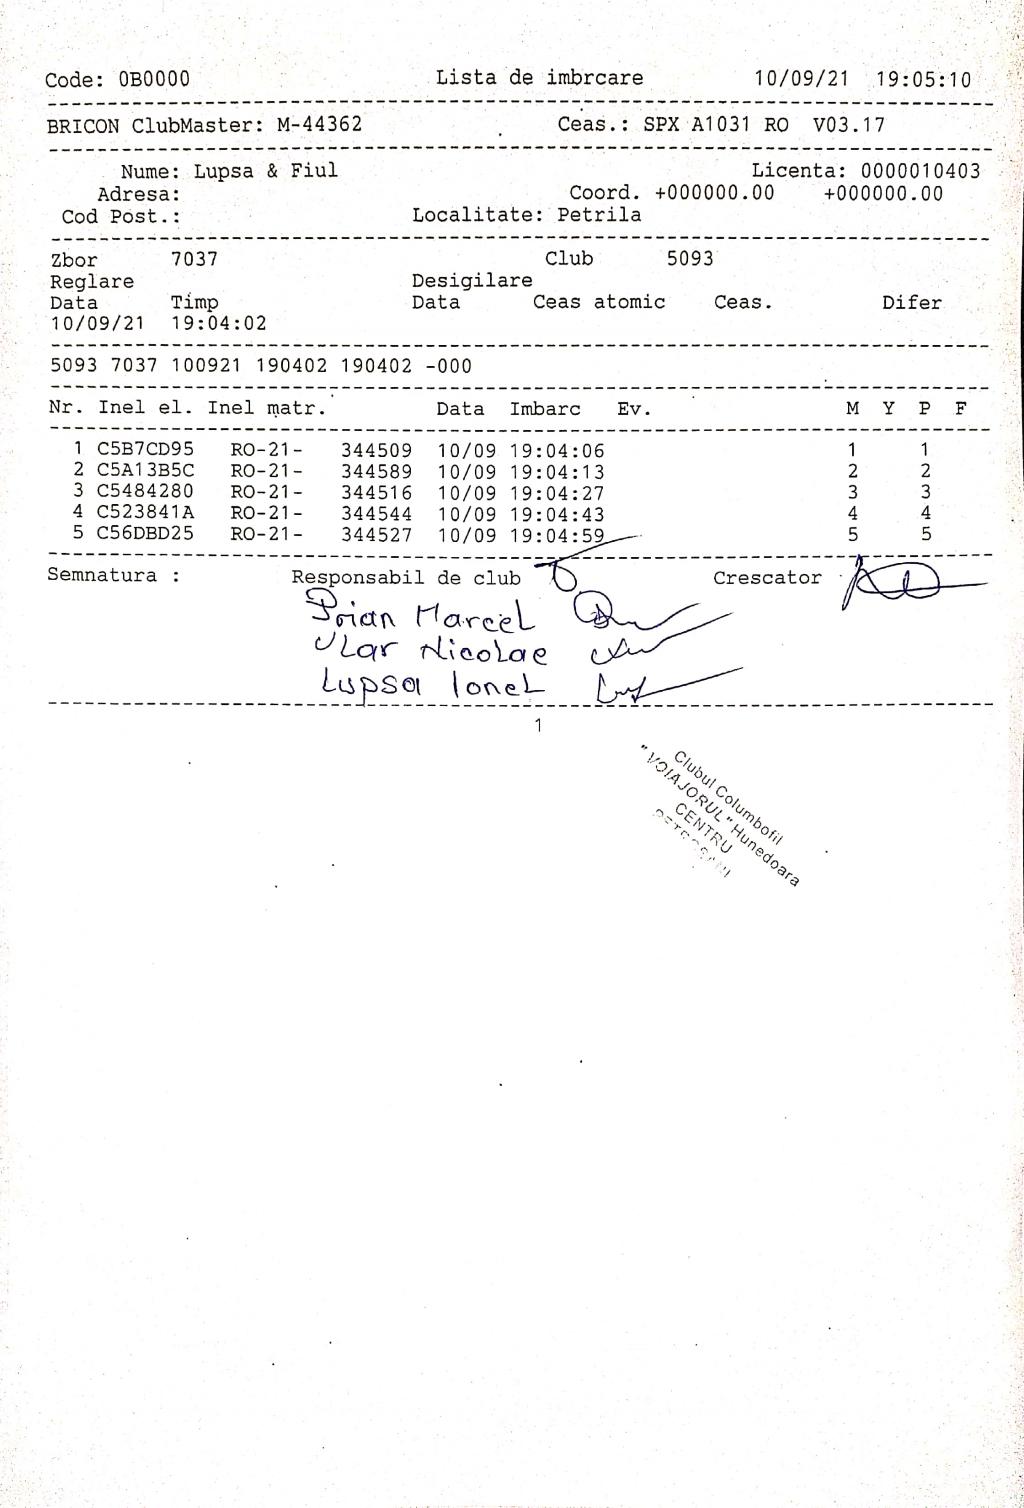 Code: 0B0000 Lista de imbrcare 10/09/21 19:05:10
BRICON ClubMaster: M-44362 Ceas.: SPX A1031 RO V03.17
Nume: Lupsa & Fiul Licenta: 0000010403
Adresa: Coord. +000000.00 +000000.00
Cod Post.: Localitate: Petrila
Zbor 7037 Club 5093
Reglare Desigilare
Data Timp Data Ceas atomic Ceas. Difer
10/09/21 19:04:02
5093 7037 100921 190402 190402 -000
Nr. Inel el. Inel matr. Data Imbarc Ev. M Y P F
1 C5B7CD95 RO-21- 344509 10/09 19:04:06 1 1
2 C5A13B5C RO-21- 344589 10/09 19:04:13 2 2
3 C5484280 RO-21- 344516 10/09 19:04:27 3 3
4 C523841A RO-21- 344544 10/09 19:04:43 4 4
5 C56DBD25 RO-21- 344527 10/09 19:04:59 5 5
Semnatura : Responsabil de club Crescator
Marcel
Vlar Nicolae
Lupsa Ionel
1
Clubul Columbofil
"VOIAJORUL" Hunedoara
CENTRU